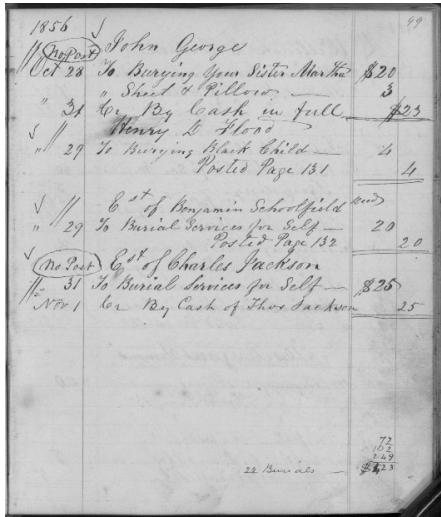 1856 99
No Post John George
Oct 28 To Burying Your Sister Martha $20
" Sheet & Pillow — 3
" 31 Cr By Cash in full $23
Henry D Flood
" 29 To Burying Black Child — 4
Posted Page 131 4
Est of Benjamin Schoolfield
" 29 To Burial Services for Self — 20
Posted Page 132 20
No Post Est of Charles Jackson
" 31 To Burial Services for Self — $25
Nov 1 Cr By Cash of Thos Jackson 25
72
102
249
22 Burials — $423